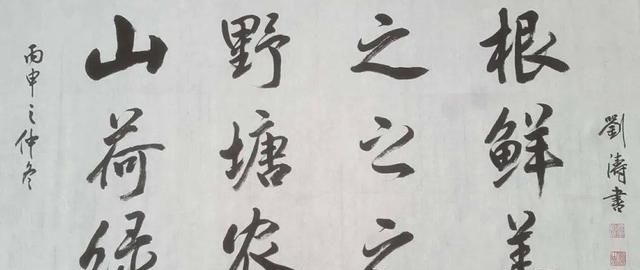 丙申之仲冬
山野之根
荷塘之鲜
绿农之美
劉濤書